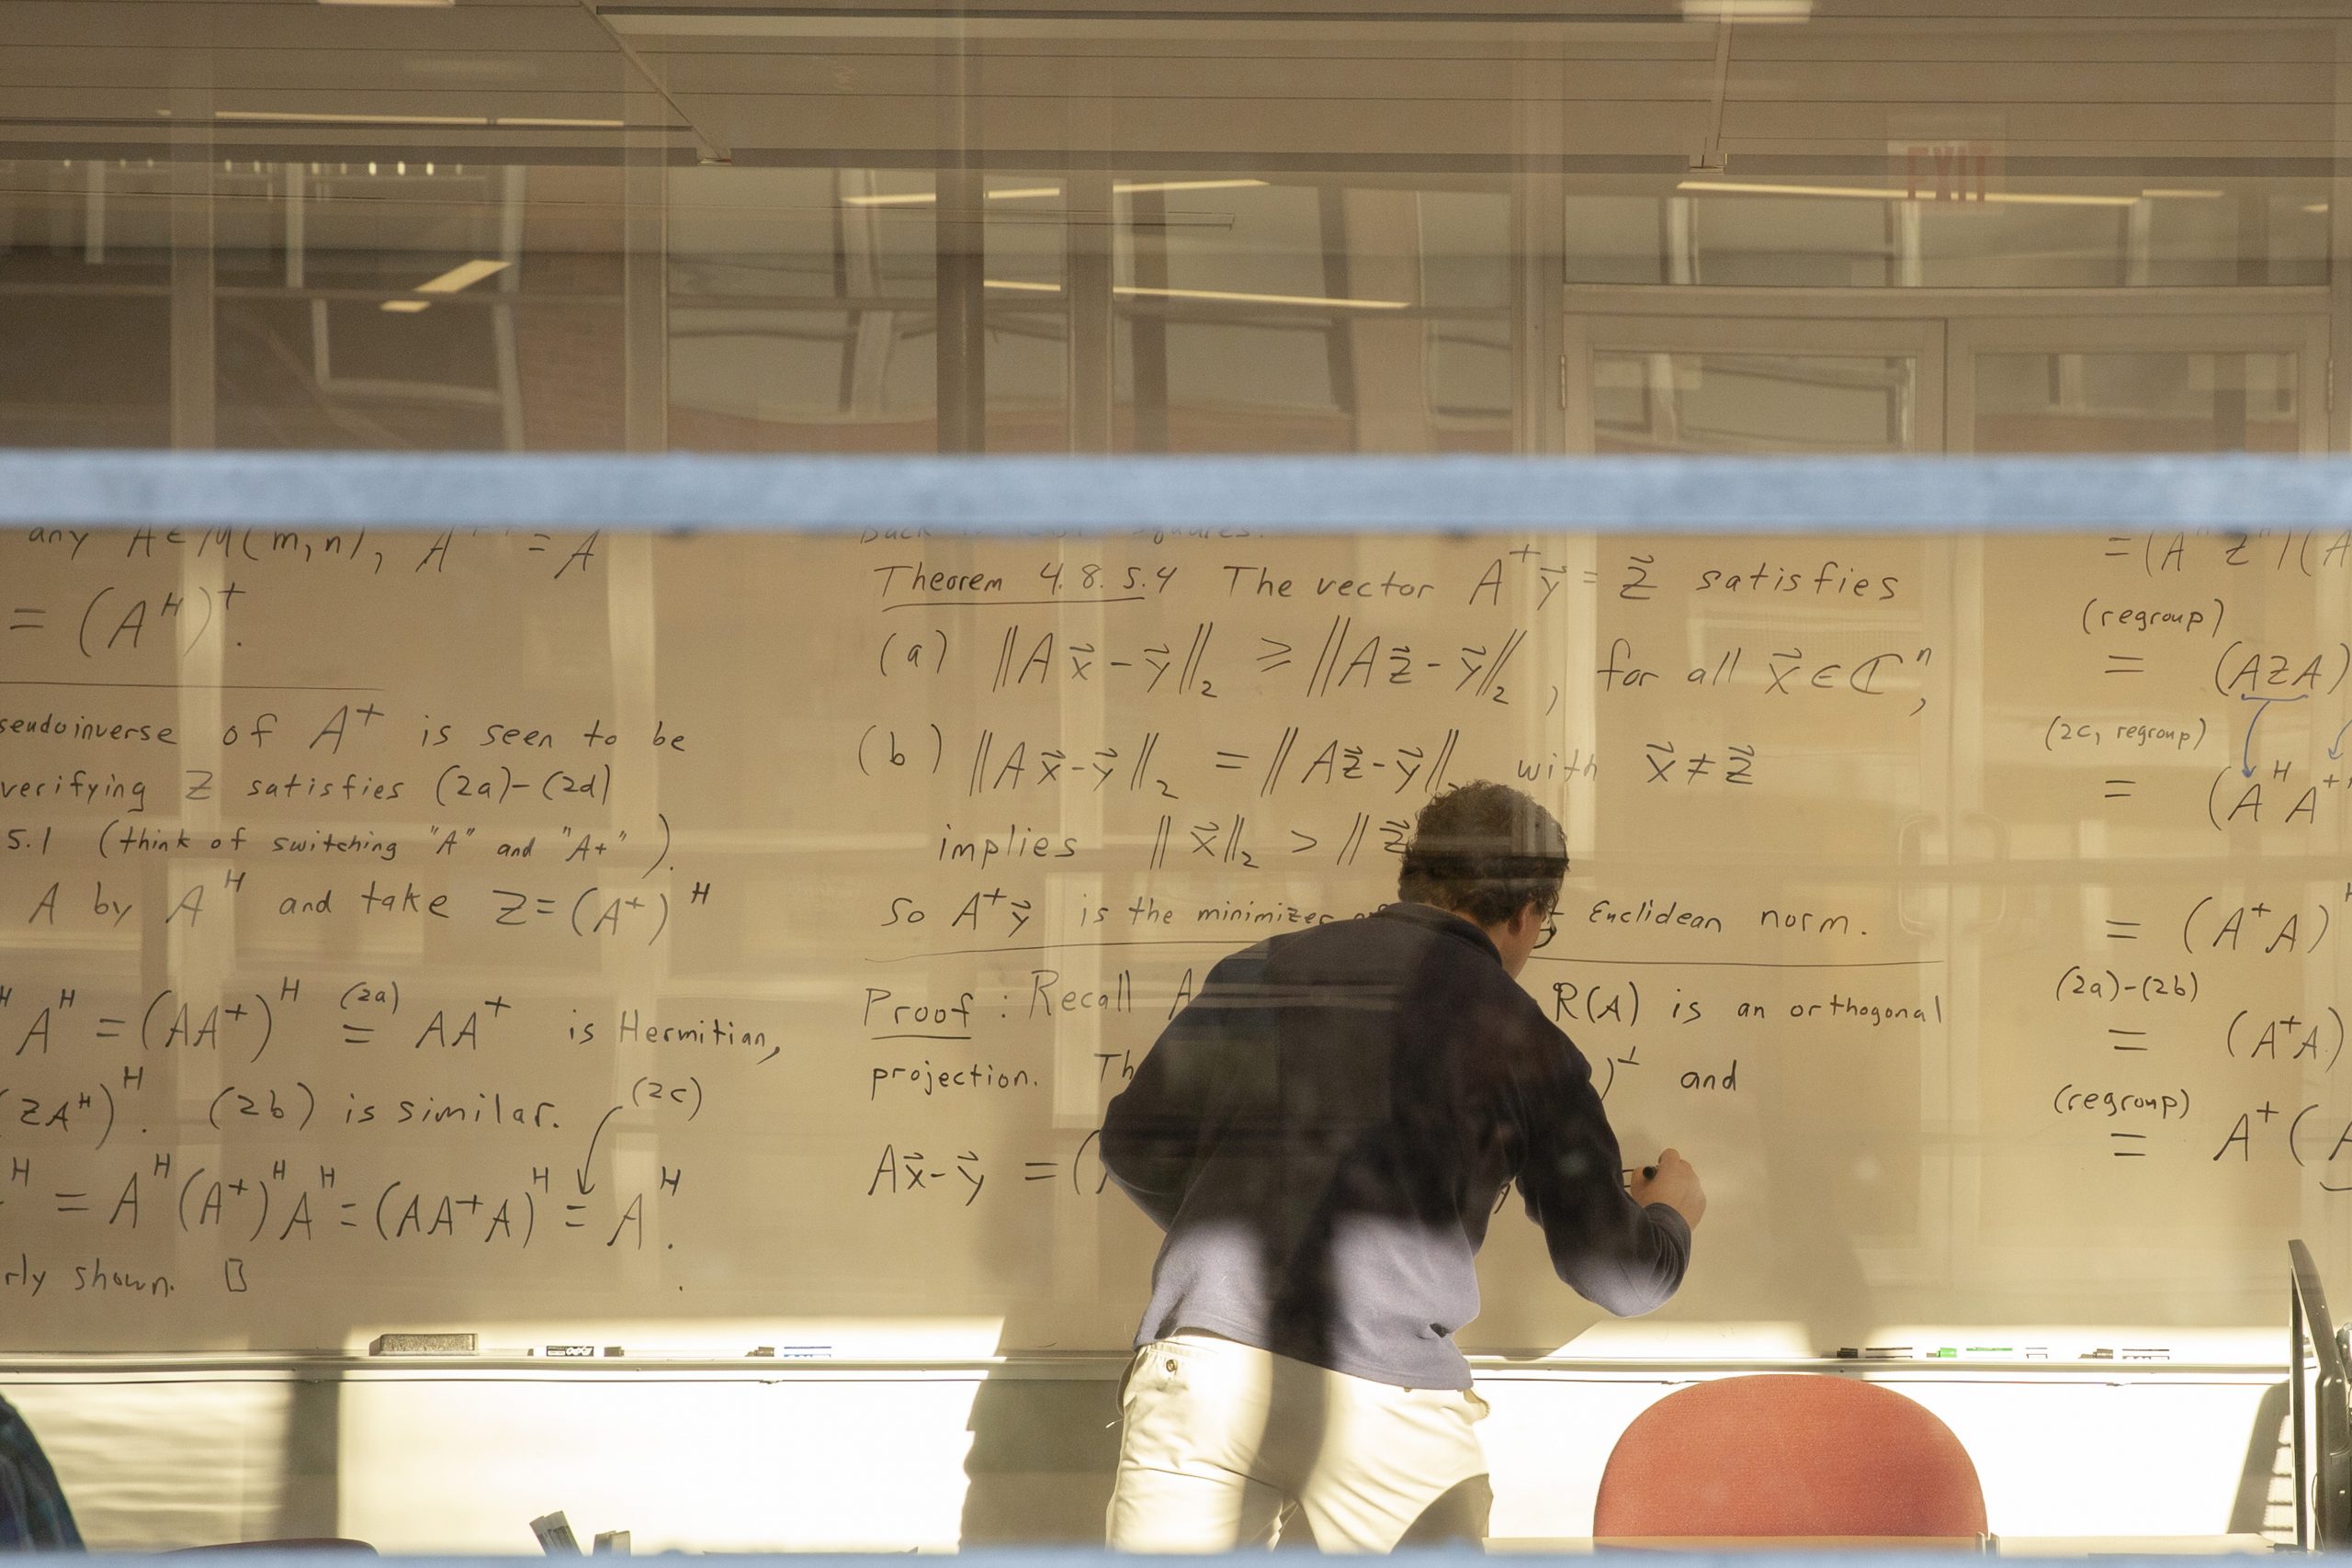 EXIT
any A ∈ M(m,n), A⁺⁺ = A
= (Aᴴ)⁺.
of A⁺ is seen to be
verifying Z satisfies (2a)-(2d)
5.1 (think of switching "A" and "A+").
A by Aᴴ and take Z = (A⁺)ᴴ
ᴴAᴴ = (AA⁺)ᴴ (2a) = AA⁺ is Hermitian,
(ZAᴴ)ᴴ. (2b) is similar. (2c)
ᴴ = Aᴴ(A⁺)ᴴAᴴ = (AA⁺A)ᴴ = Aᴴ.
shown. □
squares.
Theorem 4.8.5.4 The vector A⁺y⃗ = z⃗ satisfies
(a) ‖Ax⃗-y⃗‖₂ ⩾ ‖Az⃗-y⃗‖₂, for all x⃗ ∈ ℂⁿ,
(b) ‖Ax⃗-y⃗‖₂ = ‖Az⃗-y⃗‖₂ with x⃗ ≠ z⃗
implies ‖x⃗‖₂ > ‖z⃗
So A⁺y⃗ is the minimizer of Euclidean norm.
Proof: Recall A R(A) is an orthogonal
projection. )⊥ and
Ax⃗-y⃗ = (
(regroup)
= (AZA)
(2c, regroup)
= (AᴴA⁺
= (A⁺A)ᴴ
(2a)-(2b)
= (A⁺A)
(regroup)
= A⁺(